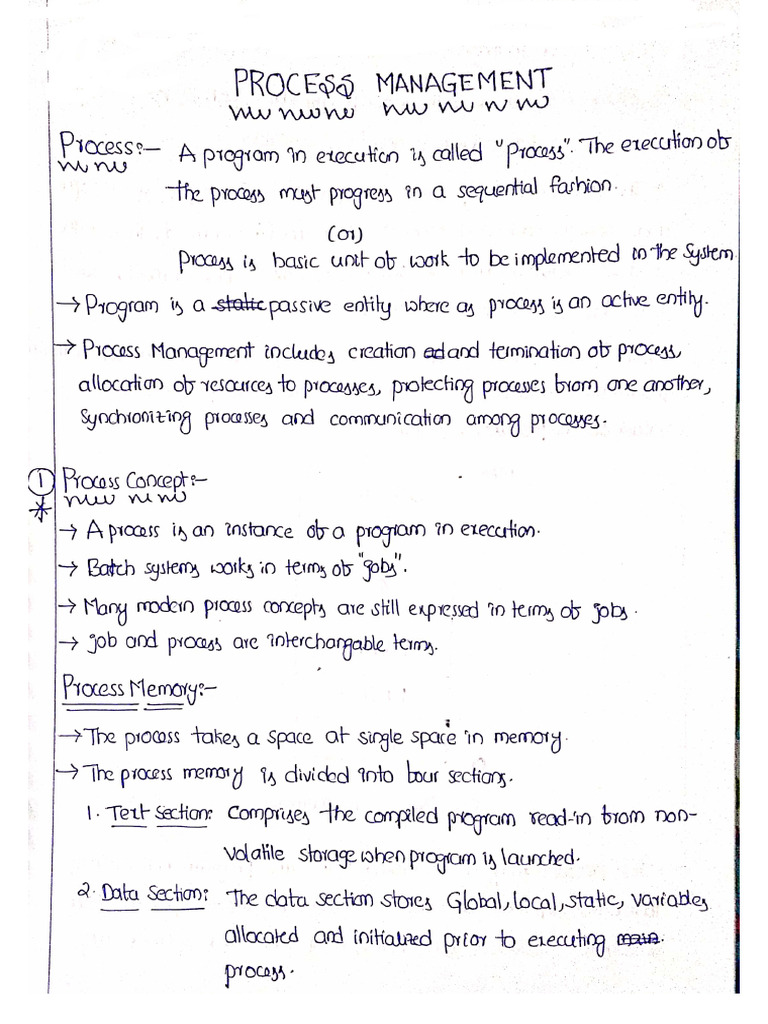 PROCESS MANAGEMENT
Process:- A program in execution is called "Process". The execution of
the process must progress in a sequential fashion.
(or)
Process is basic unit of work to be implemented in the System
→ Program is a static passive entity where as process is an active entity.
→ Process Management includes creation ed and termination of process,
allocation of resources to processes, protecting processes from one another,
Synchronizing processes and communication among processes.
① Process Concept:-
* → A process is an instance of a program in execution.
→ Batch systems works in terms of "jobs".
→ Many modern process concepts are still expressed in terms of jobs.
→ job and process are interchangable terms.
Process Memory:-
→ The process takes a space at single space in memory.
→ The process memory is divided into four sections.
1. Text Section: Comprises the compiled program read-in from non-
volatile storage when program is launched.
2. Data Section: The data section stores Global, local, static, variables
allocated and initialized prior to executing main.
process.